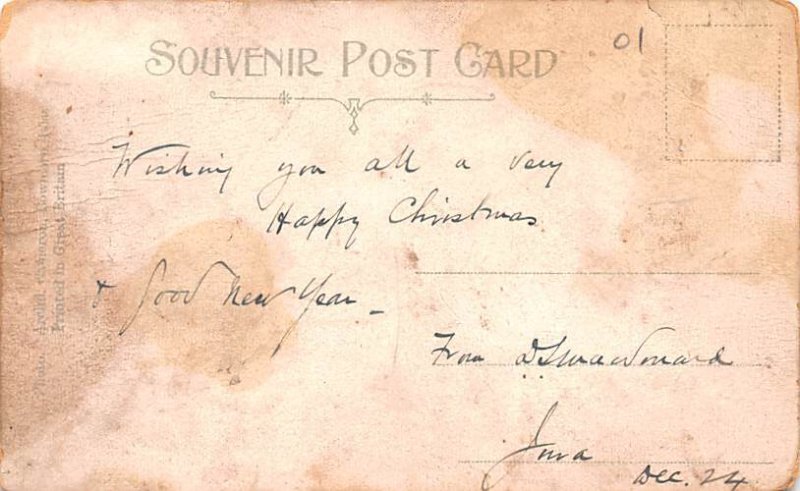 SOUVENIR POST CARD
01
Wishing you all a very
Happy Christmas
& Good New Year –
From
Iona
Dec. 24
Printed in Great Britain